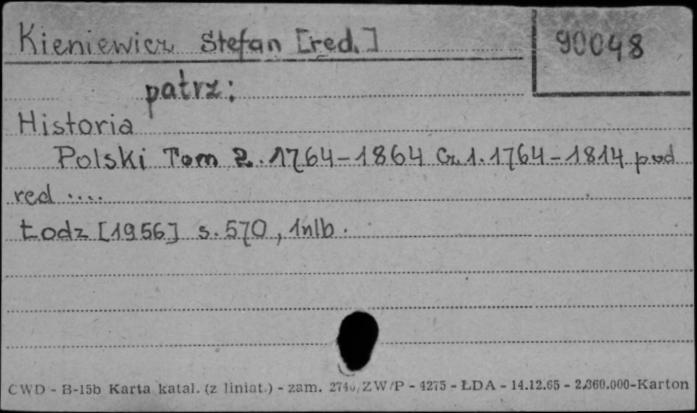 Kieniewicz Stefan [red.]
90048
patrz:
Historia
Polski Tom 2. 1764-1864 Cz. 1. 1764-1814 pod
red ....
Łodz [1956] s. 570, 1nlb.
CWD - B-15b Karta katal. (z liniat.) - zam. ZW/P - 4275 - ŁDA - 14.12.65 - 2.360.000-Karton